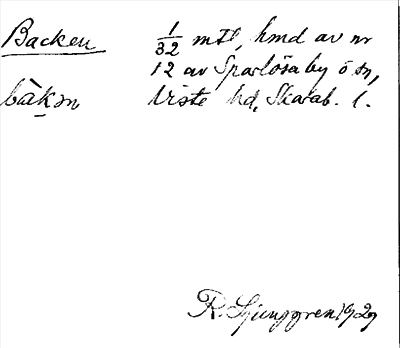 Backen 1/32 mtl, hmd av nr
12 av Sparlösa by o sn,
bàkən Viste hd, Skarab. l.
R. Ljunggren 1929